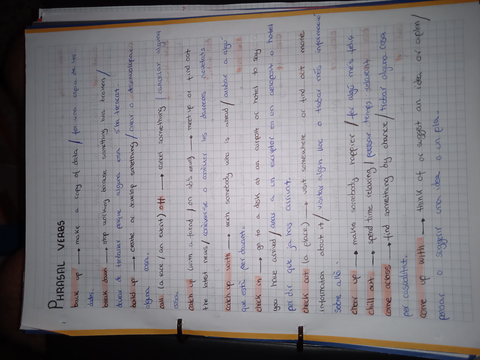 PHRASAL VERBS
back up → make a copy of data / fer una copia de les
dades.
break down → stop working because something has broken /
deixar de funcionar perque alguna cosa s'ha trencat
build up → create or develop something / crear o desenvolupar
alguna cosa.
call (a race / an event) off → cancel something / cancelar alguna
cosa.
catch up (with a friend / on sb's news) → meet up or find out
the latest news / coneixer o the darreres notícies
catch up with → reach somebody who is ahead / arribar a algú
que està per davant.
check in → go to a desk at an airport or hotel to say
you have arrived / anar a un en un aeroport o hotel
per dir que ja has arribat.
check out (a place) → visit somewhere or find out more
information about it / visitar algún lloc o trobar més informació
sobre allò.
cheer up → make somebody happier / fer algú més feliç
chill out → spend time relaxing / passar temps relaxant
come across → find something by chance / trobar alguna cosa
per casualitat.
come up with → think of or suggest an idea or a plan /
pensar o suggerir una idea o un pla.